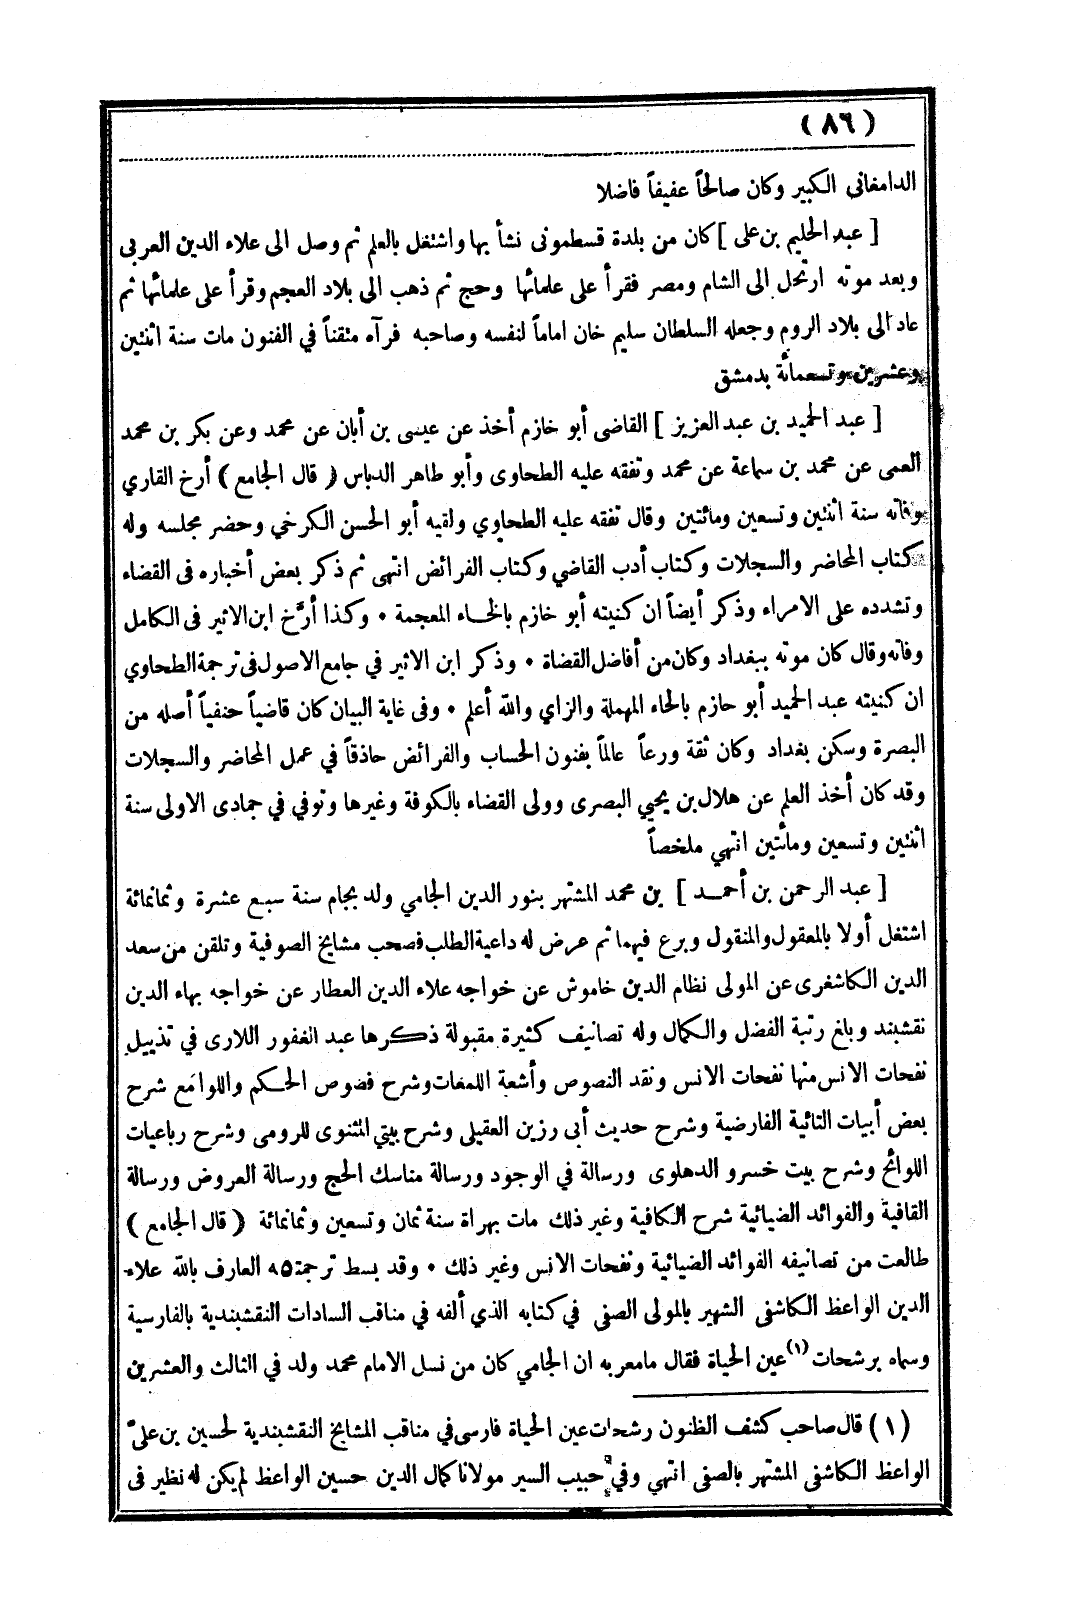 (٨٦)
الدامغانى الكبير وكان صالحاً عفيفاً فاضلا
[ عبد الحليم بن على ] كان من بلدة قسطمونى نشأ بها واشتغل بالعلم ثم وصل الى علاء الدين العربى
وبعد موته ارتحل الى الشام ومصر فقرأ على علمائها وحج ثم ذهب الى بلاد العجم وقرأ على علمائها ثم
عاد الى بلاد الروم وجعله السلطان سليم خان اماماً لنفسه وصاحبه فرآه متقناً في الفنون مات سنة اثنتين
وعشرين وتسعمائة بدمشق
[ عبد الحميد بن عبد العزيز ] القاضى أبو خازم أخذ عن عيسى بن أبان عن محمد وعن بكر بن محمد
العمى عن محمد بن سماعة عن محمد وتفقه عليه الطحاوى وأبو طاهر الدباس ( قال الجامع ) أرخ القاري
وفاته سنة اثنتين وتسعين ومائتين وقال تفقه عليه الطحاوي ولقيه أبو الحسن الكرخي وحضر مجلسه وله
كتاب المحاضر والسجلات وكتاب أدب القاضي وكتاب الفرائض انتهى ثم ذكر بعض أخباره فى القضاء
وتشدده على الامراء وذكر أيضاً ان كنيته أبو خازم بالخاء المعجمة • وكذا أرَّخ ابن الاثير فى الكامل
وفاته وقال كان موته ببغداد وكان من أفاضل القضاة • وذكر ابن الاثير في جامع الاصول فى ترجمة الطحاوي
ان كنيته عبد الحميد أبو حازم بالحاء المهملة والزاي والله أعلم • وفى غاية البيان كان قاضياً حنفياً أصله من
البصرة وسكن بغداد وكان ثقة ورعاً عالماً بفنون الحساب والفرائض حاذقاً في عمل المحاضر والسجلات
وقد كان أخذ العلم عن هلال بن يحيي البصرى وولى القضاء بالكوفة وغيرها وتوفي في جمادى الاولى سنة
اثنتين وتسعين ومائتين انتهي ملخصاً
[ عبد الرحمن بن أحمد ] بن محمد المشتهر بنور الدين الجامي ولد بجام سنة سبع عشرة وثمانمائة
اشتغل أولا بالمعقول والمنقول وبرع فيهما ثم عرض له داعية الطلب فصحب مشايخ الصوفية وتلقن من سعد
الدين الكاشغرى عن المولى نظام الدين خاموش عن خواجه علاء الدين العطار عن خواجه بهاء الدين
نقشبند وبلغ رتبة الفضل والكمال وله تصانيف كثيرة مقبولة ذكرها عبد الغفور اللارى في تذييل
نفحات الانس منها نفحات الانس ونقد النصوص وأشعة اللمعات وشرح فصوص الحكم واللوامع شرح
بعض أبيات التائية الفارضية وشرح حديث أبى رزين العقيلى وشرح بيتي المثنوى للرومى وشرح رباعيات
اللوائح وشرح بيت خسرو الدهلوى ورسالة في الوجود ورسالة مناسك الحج ورسالة العروض ورسالة
القافية والفوائد الضيائية شرح الكافية وغير ذلك مات بهراة سنة ثمان وتسعين وثمانمائة ( قال الجامع )
طالعت من تصانيفه الفوائد الضيائية ونفحات الانس وغير ذلك • وقد بسط ترجمته العارف بالله علاء
الدين الواعظ الكاشفى الشهير بالمولى الصفى في كتابه الذي ألفه في مناقب السادات النقشبندية بالفارسية
وسماه برشحات (١) عين الحياة فقال مامعربه ان الجامي كان من نسل الامام محمد ولد في الثالث والعشرين
(١) قال صاحب كشف الظنون رشحات عين الحياة فارسى في مناقب المشايخ النقشبندية لحسين بن على
الواعظ الكاشفى المشتهر بالصفى انتهي وفي حبيب السير مولانا كمال الدين حسين الواعظ لم يكن له نظير فى